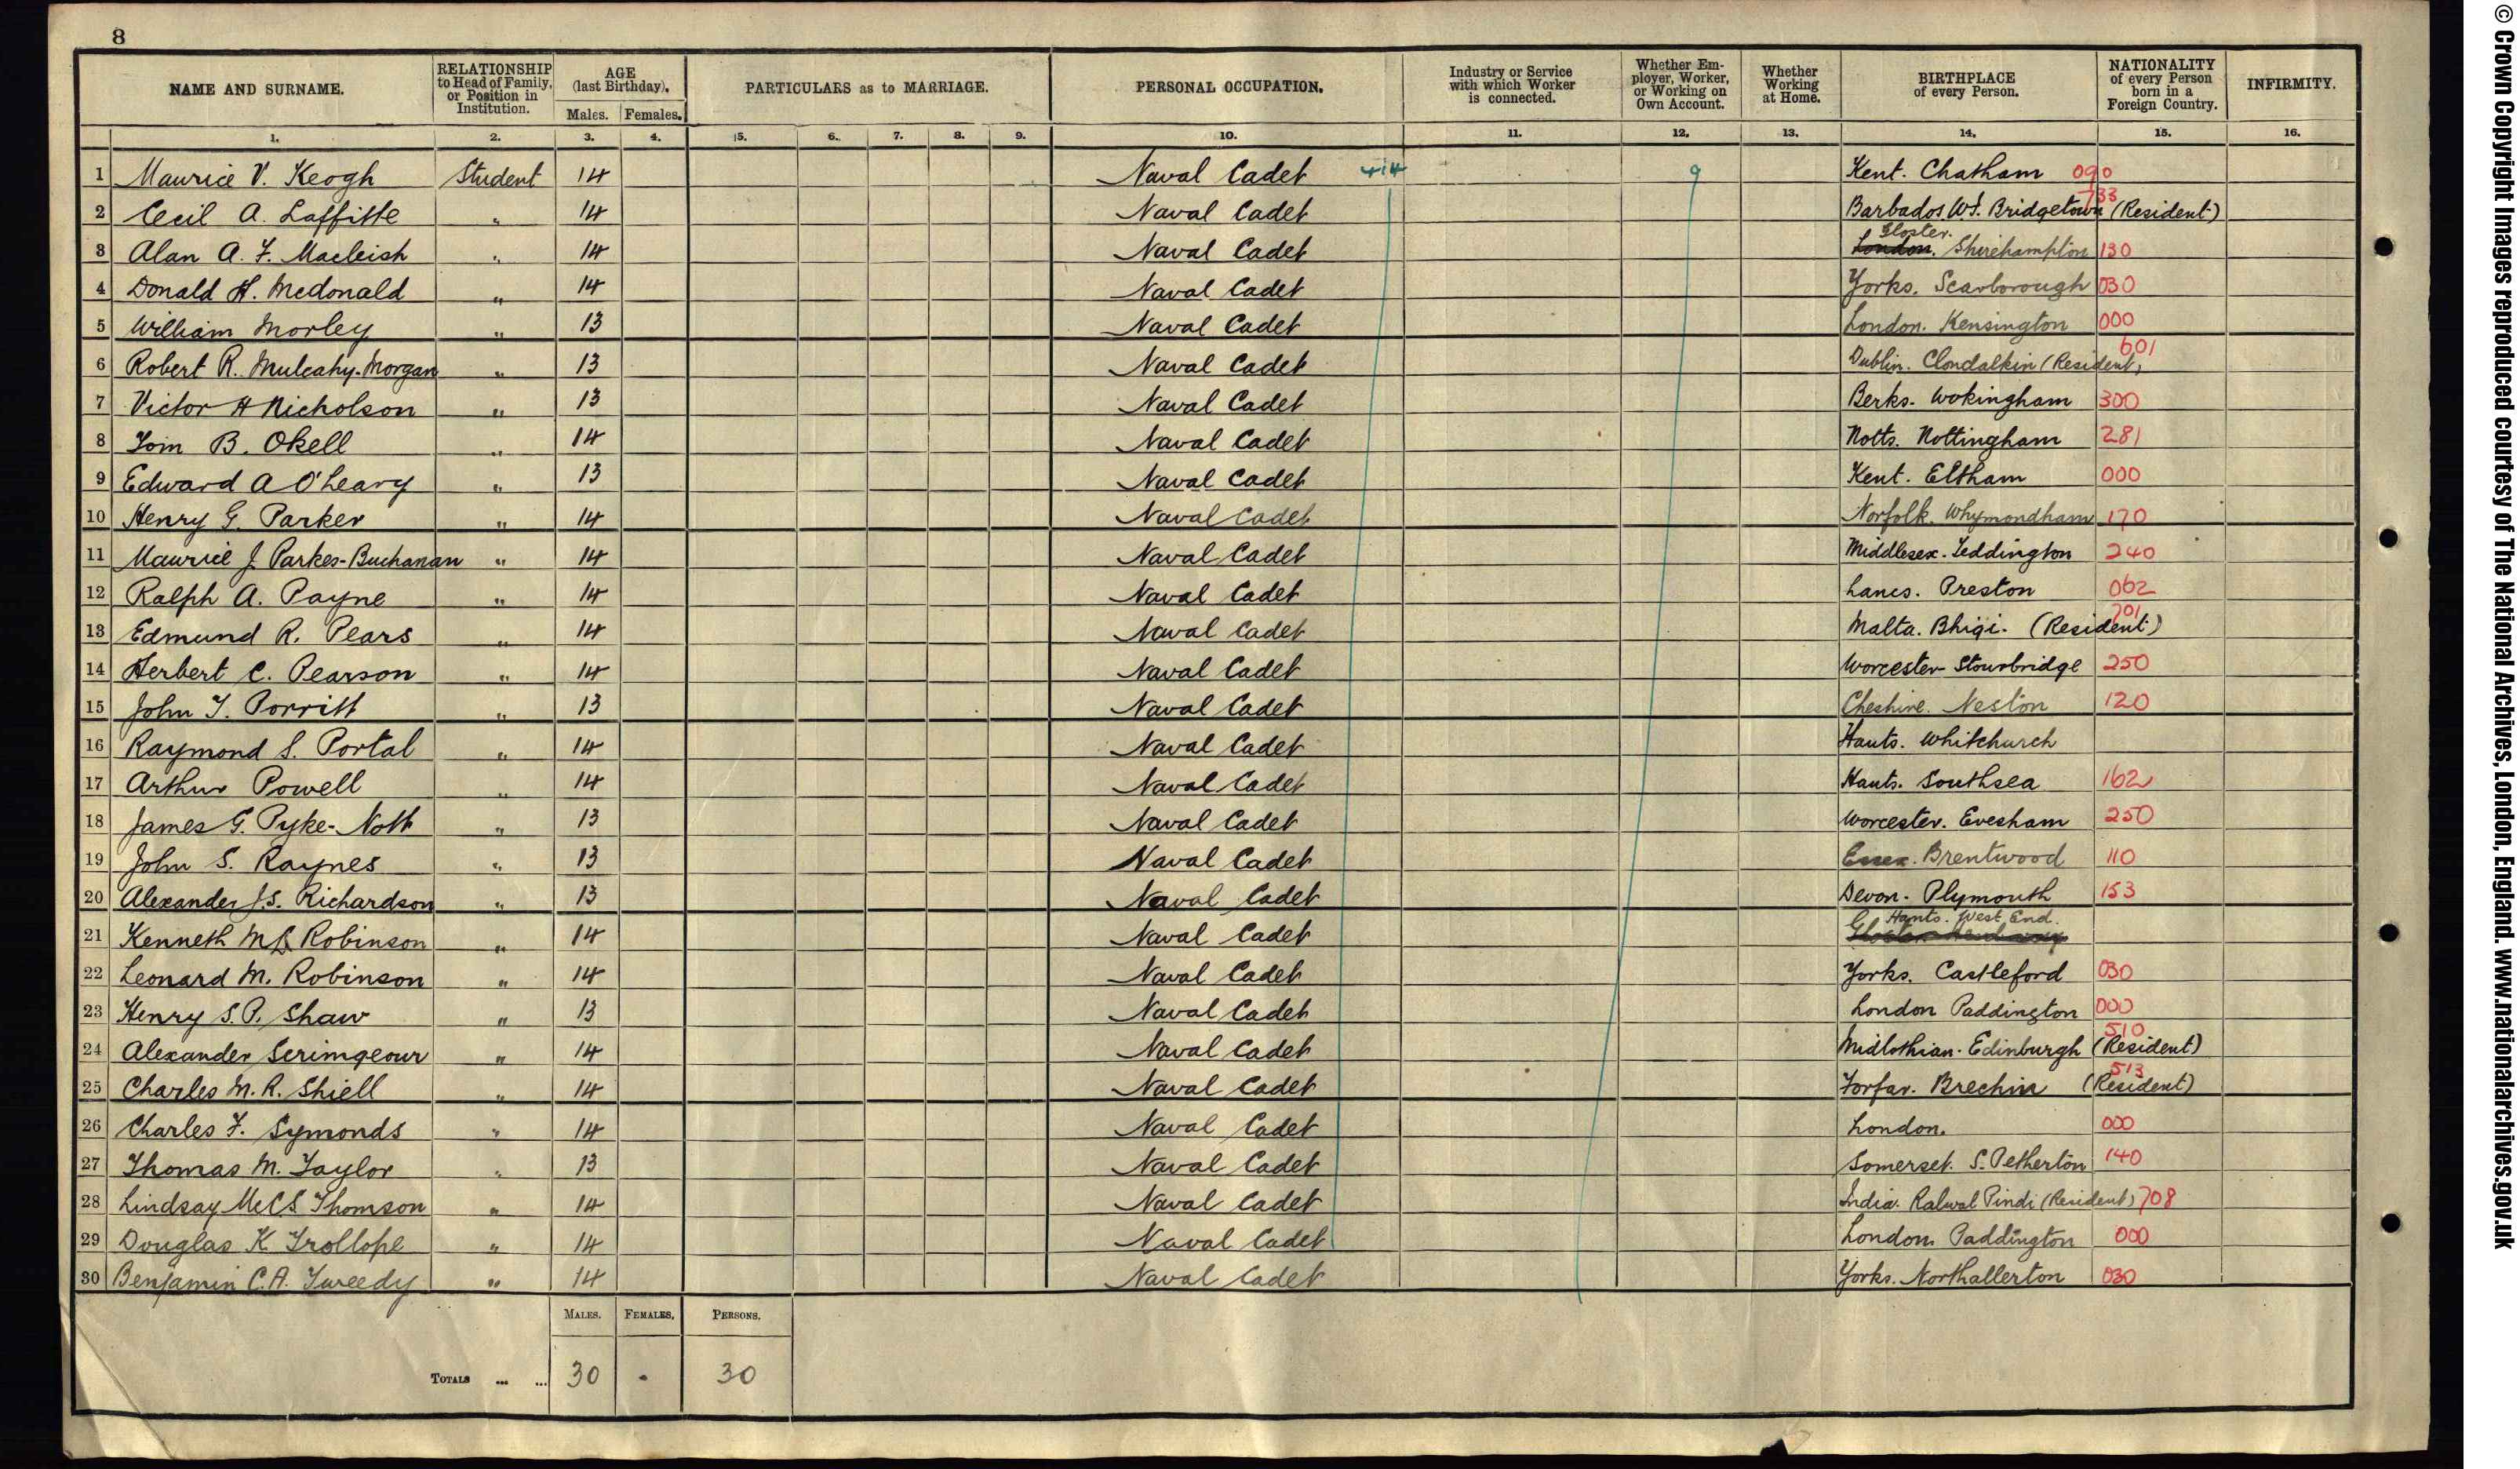 8
NAME AND SURNAME. RELATIONSHIP to Head of Family, or Position in Institution. AGE (last Birthday). Males. Females. PARTICULARS as to MARRIAGE. PERSONAL OCCUPATION. Industry or Service with which Worker is connected. Whether Employer, Worker, or Working on Own Account. Whether Working at Home. BIRTHPLACE of every Person. NATIONALITY of every Person born in a Foreign Country. INFIRMITY.
1. 2. 3. 4. 5. 6. 7. 8. 9. 10. 11. 12. 13. 14. 15. 16.
1 Maurice V. Keogh Student 14 Naval Cadet 414 9 Kent. Chatham 090
2 Cecil A. Laffitte " 14 Naval Cadet Barbados. W.I. Bridgetown (Resident) 733
3 Alan A. F. Macleish " 14 Naval Cadet London. Gloster. Shirehampton 130
4 Donald H. Mcdonald " 14 Naval Cadet Yorks. Scarborough 030
5 William Morley " 13 Naval Cadet London. Kensington 000
6 Robert R. Mulcahy-Morgan " 13 Naval Cadet Dublin. Clondalkin (Resident) 601
7 Victor H Nicholson " 13 Naval Cadet Berks. Wokingham 300
8 Tom B. Okell " 14 Naval Cadet Notts. Nottingham 281
9 Edward A O'Leary " 13 Naval Cadet Kent. Eltham 000
10 Henry G. Parker " 14 Naval Cadet Norfolk. Whymondham 170
11 Maurice J. Parkes-Buchanan " 14 Naval Cadet Middlesex. Teddington 240
12 Ralph A. Payne " 14 Naval Cadet Lancs. Preston 062
13 Edmund R. Pears " 14 Naval Cadet Malta. Bhigi. (Resident) 701
14 Herbert C. Pearson " 14 Naval Cadet Worcester Stourbridge 250
15 John T. Porritt " 13 Naval Cadet Cheshire. Neston 120
16 Raymond S. Portal " 14 Naval Cadet Hants. Whitchurch
17 Arthur Powell " 14 Naval Cadet Hants. Southsea 162
18 James G. Pyke-Nott " 13 Naval Cadet Worcester. Evesham 250
19 John S. Raynes " 13 Naval Cadet Essex. Brentwood 110
20 Alexander J.S. Richardson " 13 Naval Cadet Devon. Plymouth 153
21 Kenneth Robinson " 14 Naval Cadet Hants. West End.
22 Leonard M. Robinson " 14 Naval Cadet Yorks. Castleford 030
23 Henry S.P. Shaw " 13 Naval Cadet London Paddington 000
24 Alexander Scrimgeour " 14 Naval Cadet Midlothian. Edinburgh (Resident) 510
25 Charles M. R. Shiell " 14 Naval Cadet Forfar. Brechin (Resident) 513
26 Charles F. Symonds " 14 Naval Cadet London. 000
27 Thomas M. Taylor " 13 Naval Cadet Somerset. S. Petherton 140
28 Lindsay McC.S Thomson " 14 Naval Cadet India. Ralwal Pindi (Resident) 708
29 Douglas K Trollope " 14 Naval Cadet London. Paddington 000
30 Benjamin C.A. Tweedy " 14 Naval Cadet Yorks. Northallerton 030
MALES. FEMALES. PERSONS.
TOTALS ... ... 30 - 30
© Crown Copyright Images reproduced courtesy of The National Archives, London, England. www.nationalarchives.gov.uk